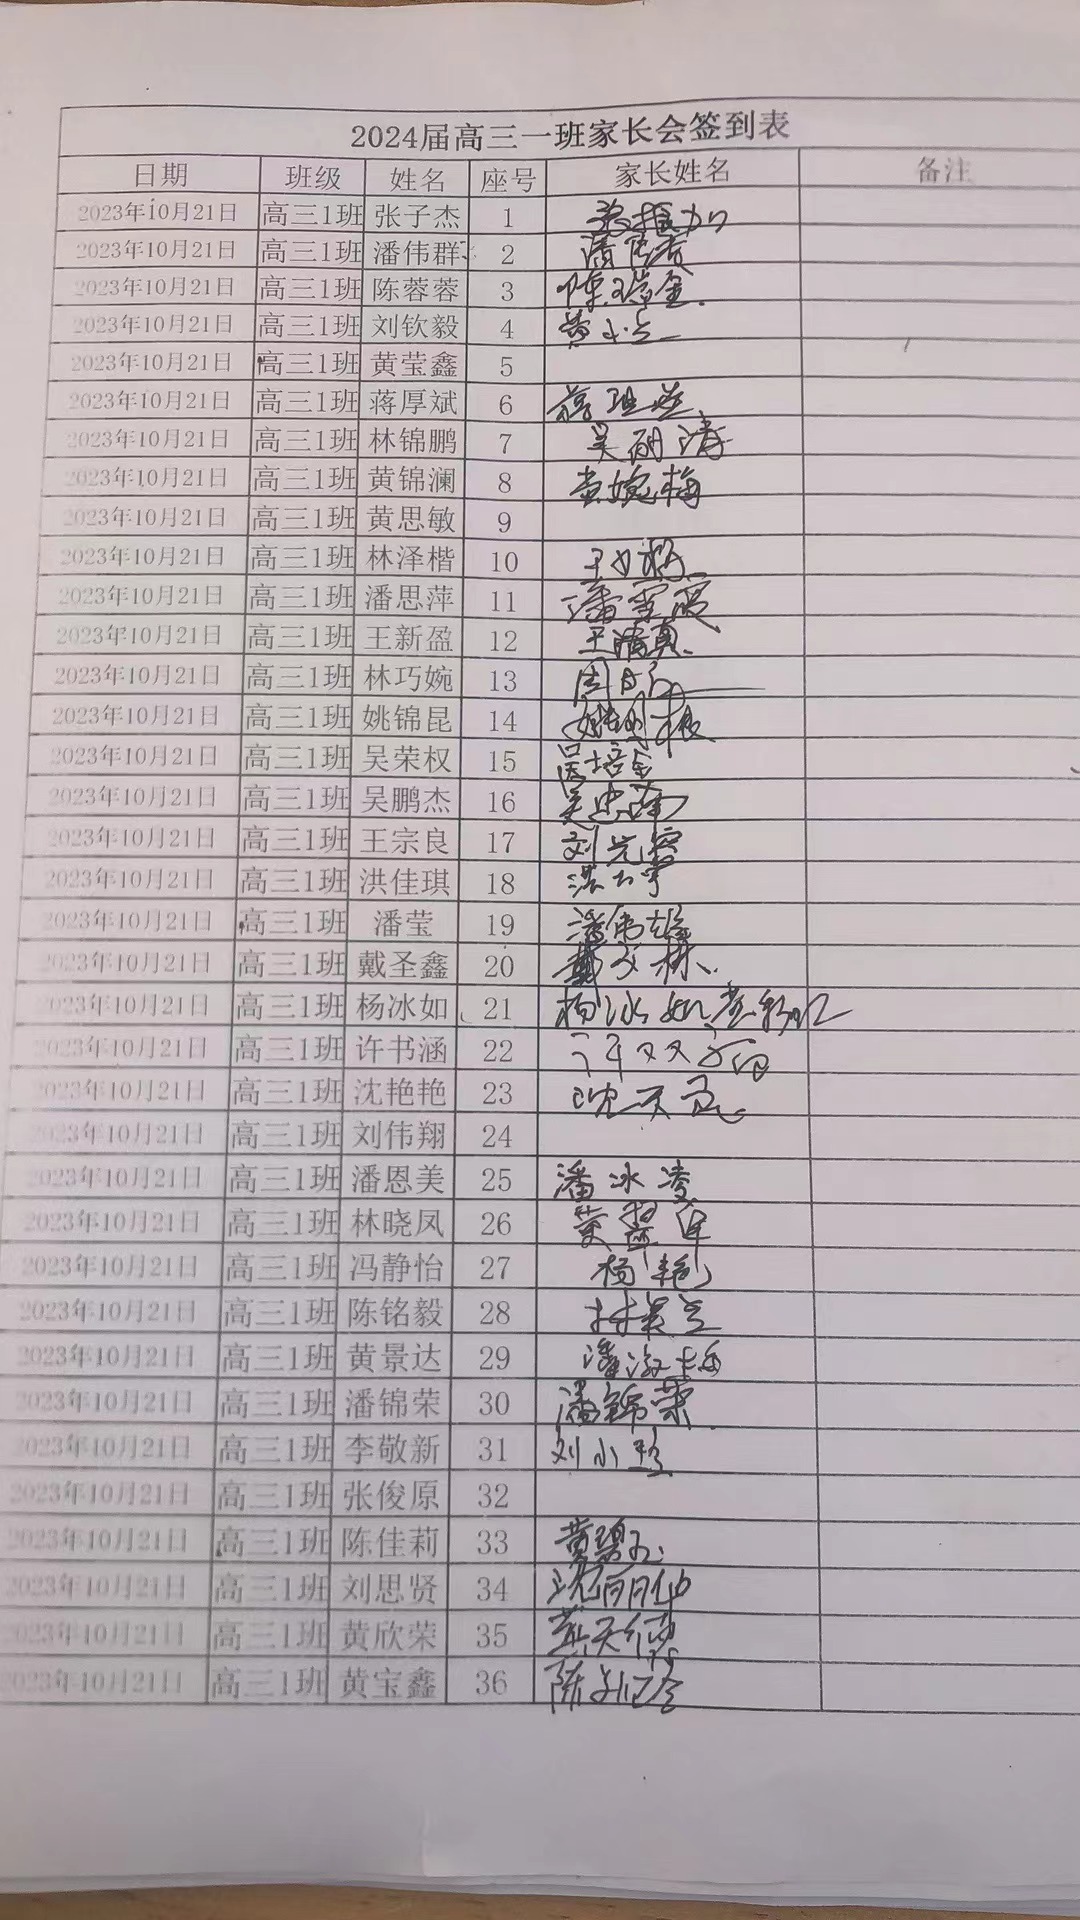 2024届高三一班家长会签到表
日期 班级 姓名 座号 家长姓名 备注
2023年10月21日 高三1班 张子杰 1
2023年10月21日 高三1班 潘伟群 2
2023年10月21日 高三1班 陈蓉蓉 3 陈瑞金
2023年10月21日 高三1班 刘钦毅 4
2023年10月21日 高三1班 黄莹鑫 5
2023年10月21日 高三1班 蒋厚斌 6
2023年10月21日 高三1班 林锦鹏 7 吴丽清
2023年10月21日 高三1班 黄锦澜 8 黄婉梅
2023年10月21日 高三1班 黄思敏 9
2023年10月21日 高三1班 林泽楷 10
2023年10月21日 高三1班 潘思萍 11
2023年10月21日 高三1班 王新盈 12 王清真
2023年10月21日 高三1班 林巧婉 13
2023年10月21日 高三1班 姚锦昆 14
2023年10月21日 高三1班 吴荣权 15 吴培金
2023年10月21日 高三1班 吴鹏杰 16 吴忠南
2023年10月21日 高三1班 王宗良 17
2023年10月21日 高三1班 洪佳琪 18
2023年10月21日 高三1班 潘莹 19 潘伟雄
2023年10月21日 高三1班 戴圣鑫 20 戴文林
2023年10月21日 高三1班 杨冰如 21 杨冰如
2023年10月21日 高三1班 许书涵 22
2023年10月21日 高三1班 沈艳艳 23
2023年10月21日 高三1班 刘伟翔 24
2023年10月21日 高三1班 潘恩美 25 潘冰凌
2023年10月21日 高三1班 林晓凤 26
2023年10月21日 高三1班 冯静怡 27 杨艳
2023年10月21日 高三1班 陈铭毅 28
2023年10月21日 高三1班 黄景达 29
2023年10月21日 高三1班 潘锦荣 30 潘锦荣
2023年10月21日 高三1班 李敬新 31
2023年10月21日 高三1班 张俊原 32
2023年10月21日 高三1班 陈佳莉 33
2023年10月21日 高三1班 刘思贤 34
2023年10月21日 高三1班 黄欣荣 35
2023年10月21日 高三1班 黄宝鑫 36